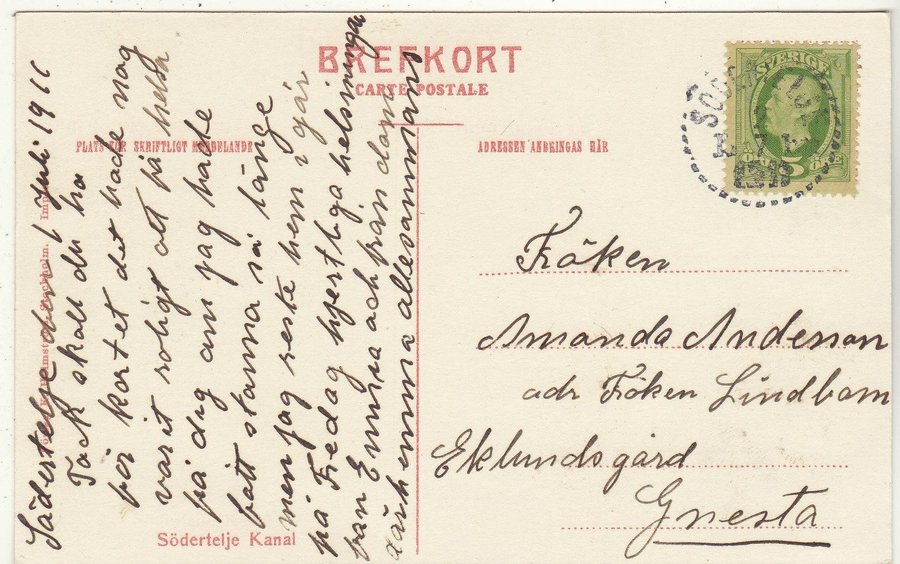 BREFKORT
CARTE POSTALE
PLATS FÖR SKRIFTLIGT MEDDELANDE
ADRESSEN ANBRINGAS HÄR
SVERIGE
5
Södertelje den 1 Juli 1911
Tack skall du ha
för kortet det hade nog
varit roligt att få helsa
på dig om jag hade
fått stanna så länge
men jag reste hem i går
på Fredag hjertliga helsningar
från Emma och från dom
där hemma allesammans
Fröken
Amanda Anderson
adr Fröken Lindbom
Eklundsgård
Gnesta
Södertelje Kanal